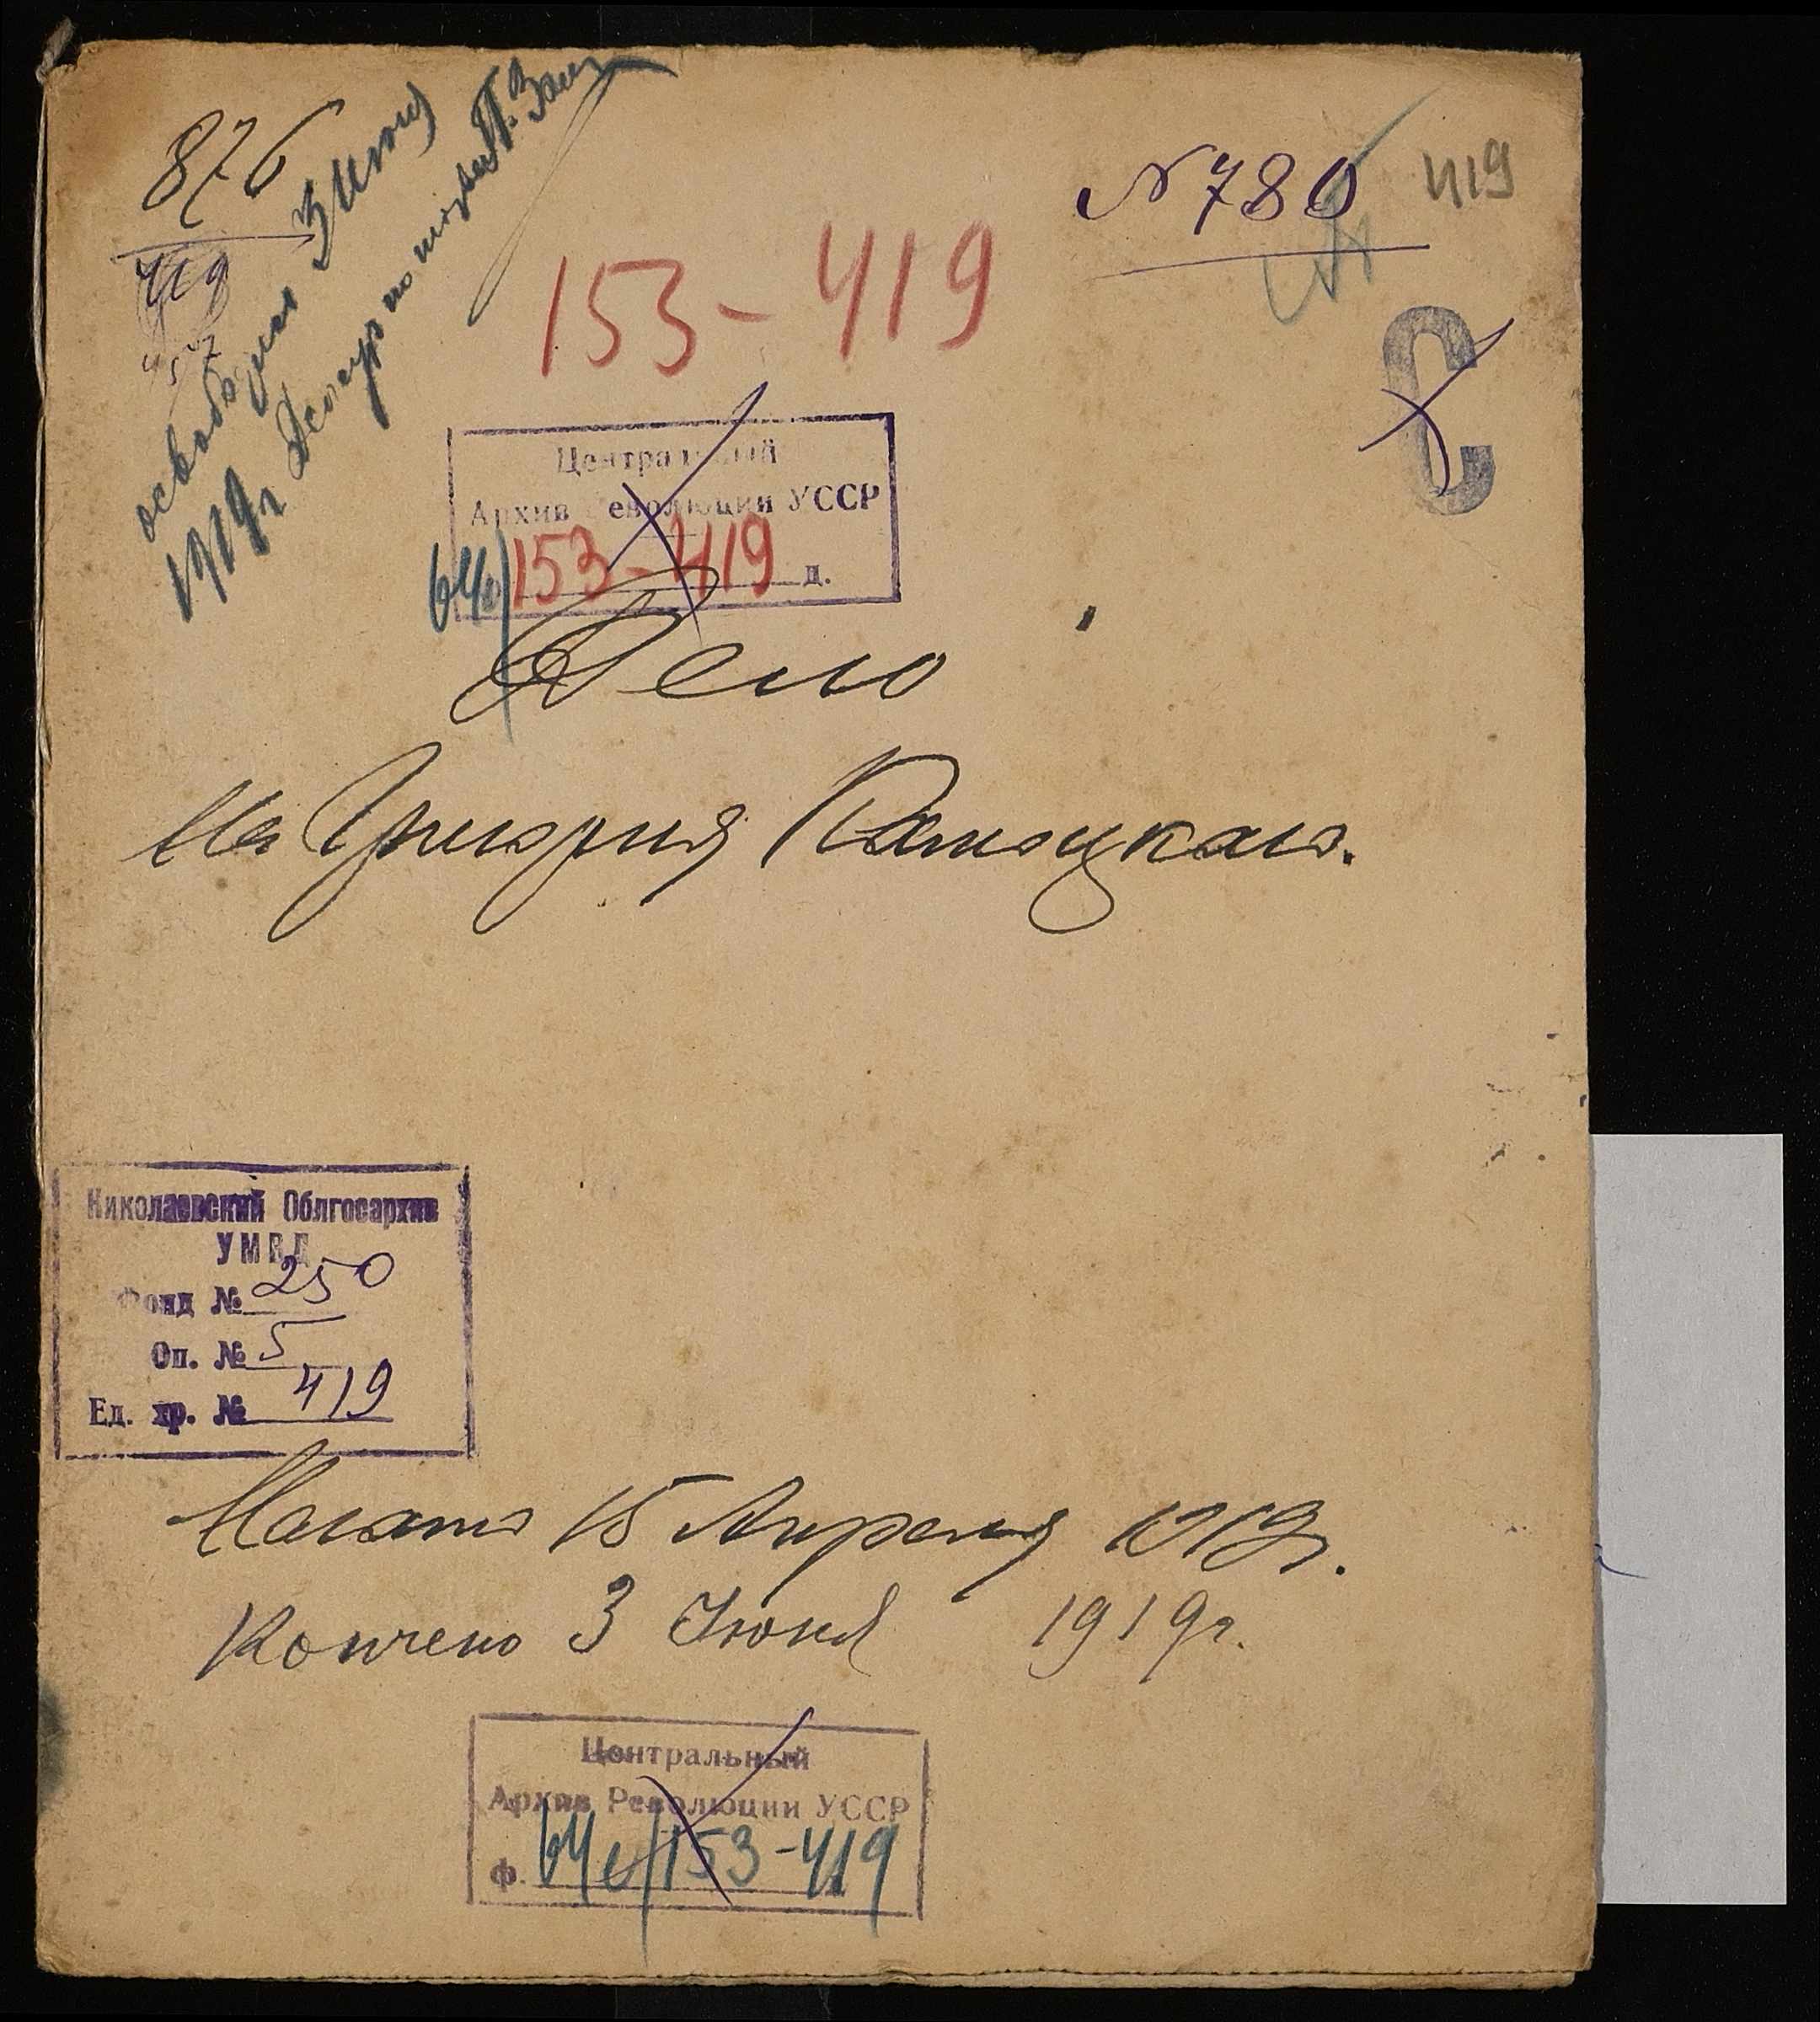 876
419
457
освобожден 3 июня
1919 г.
№ 780
419
153-419
С
Центральный
Архив Революции УССР
64с/153-419 д.
Дело
На Григория Каноцкаго.
Николаевский Облгосархив
УМВД
Фонд № 250
Оп. № 5
Ед. хр. № 419
Начато 15 Апреля 1919 г.
Кончено 3 Июня 1919 г.
Центральный
Архив Революции УССР
ф. 64с/153-419